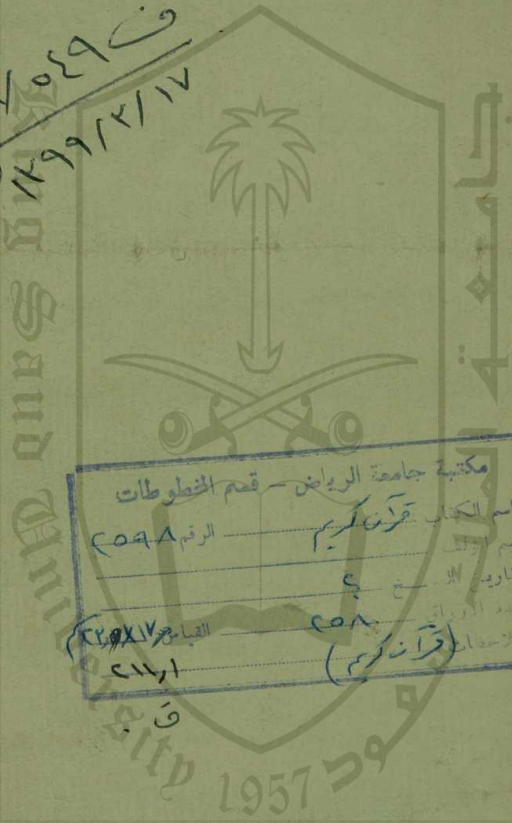 ف ٥٤٩ /
١٣٩٩/٣/١٧
مكتبة جامعة الرياض - قسم المخطوطات
اسم الكتاب قرآن كريم الرقم ٢٥٩٨
اسم المؤلف
تاريخ النسخ ؟
عدد الأوراق ٢٥٨ القياس
(قرآن كريم)
٢١١٫١
ق .
King Saud University
1957
جامعة الملك سعود